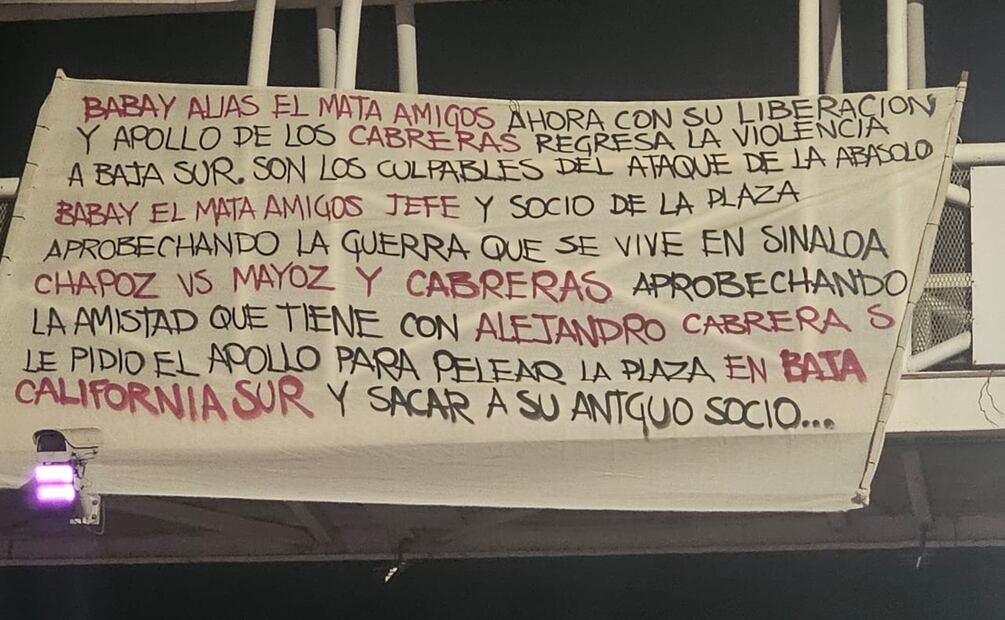 BABAY ALIAS EL MATA AMIGOS AHORA CON SU LIBERACION
Y APOLLO DE LOS CABRERAS REGRESA LA VIOLENCIA
A BAJA SUR. SON LOS CULPABLES DEL ATAQUE DE LA ABASOLO
BABAY EL MATA AMIGOS JEFE Y SOCIO DE LA PLAZA
APROBECHANDO LA GUERRA QUE SE VIVE EN SINALOA
CHAPOZ VS MAYOZ Y CABRERAS APROBECHANDO
LA AMISTAD QUE TIENE CON ALEJANDRO CABRERA S
LE PIDIO EL APOLLO PARA PELEAR LA PLAZA EN BAJA
CALIFORNIA SUR Y SACAR A SU ANTGUO SOCIO...